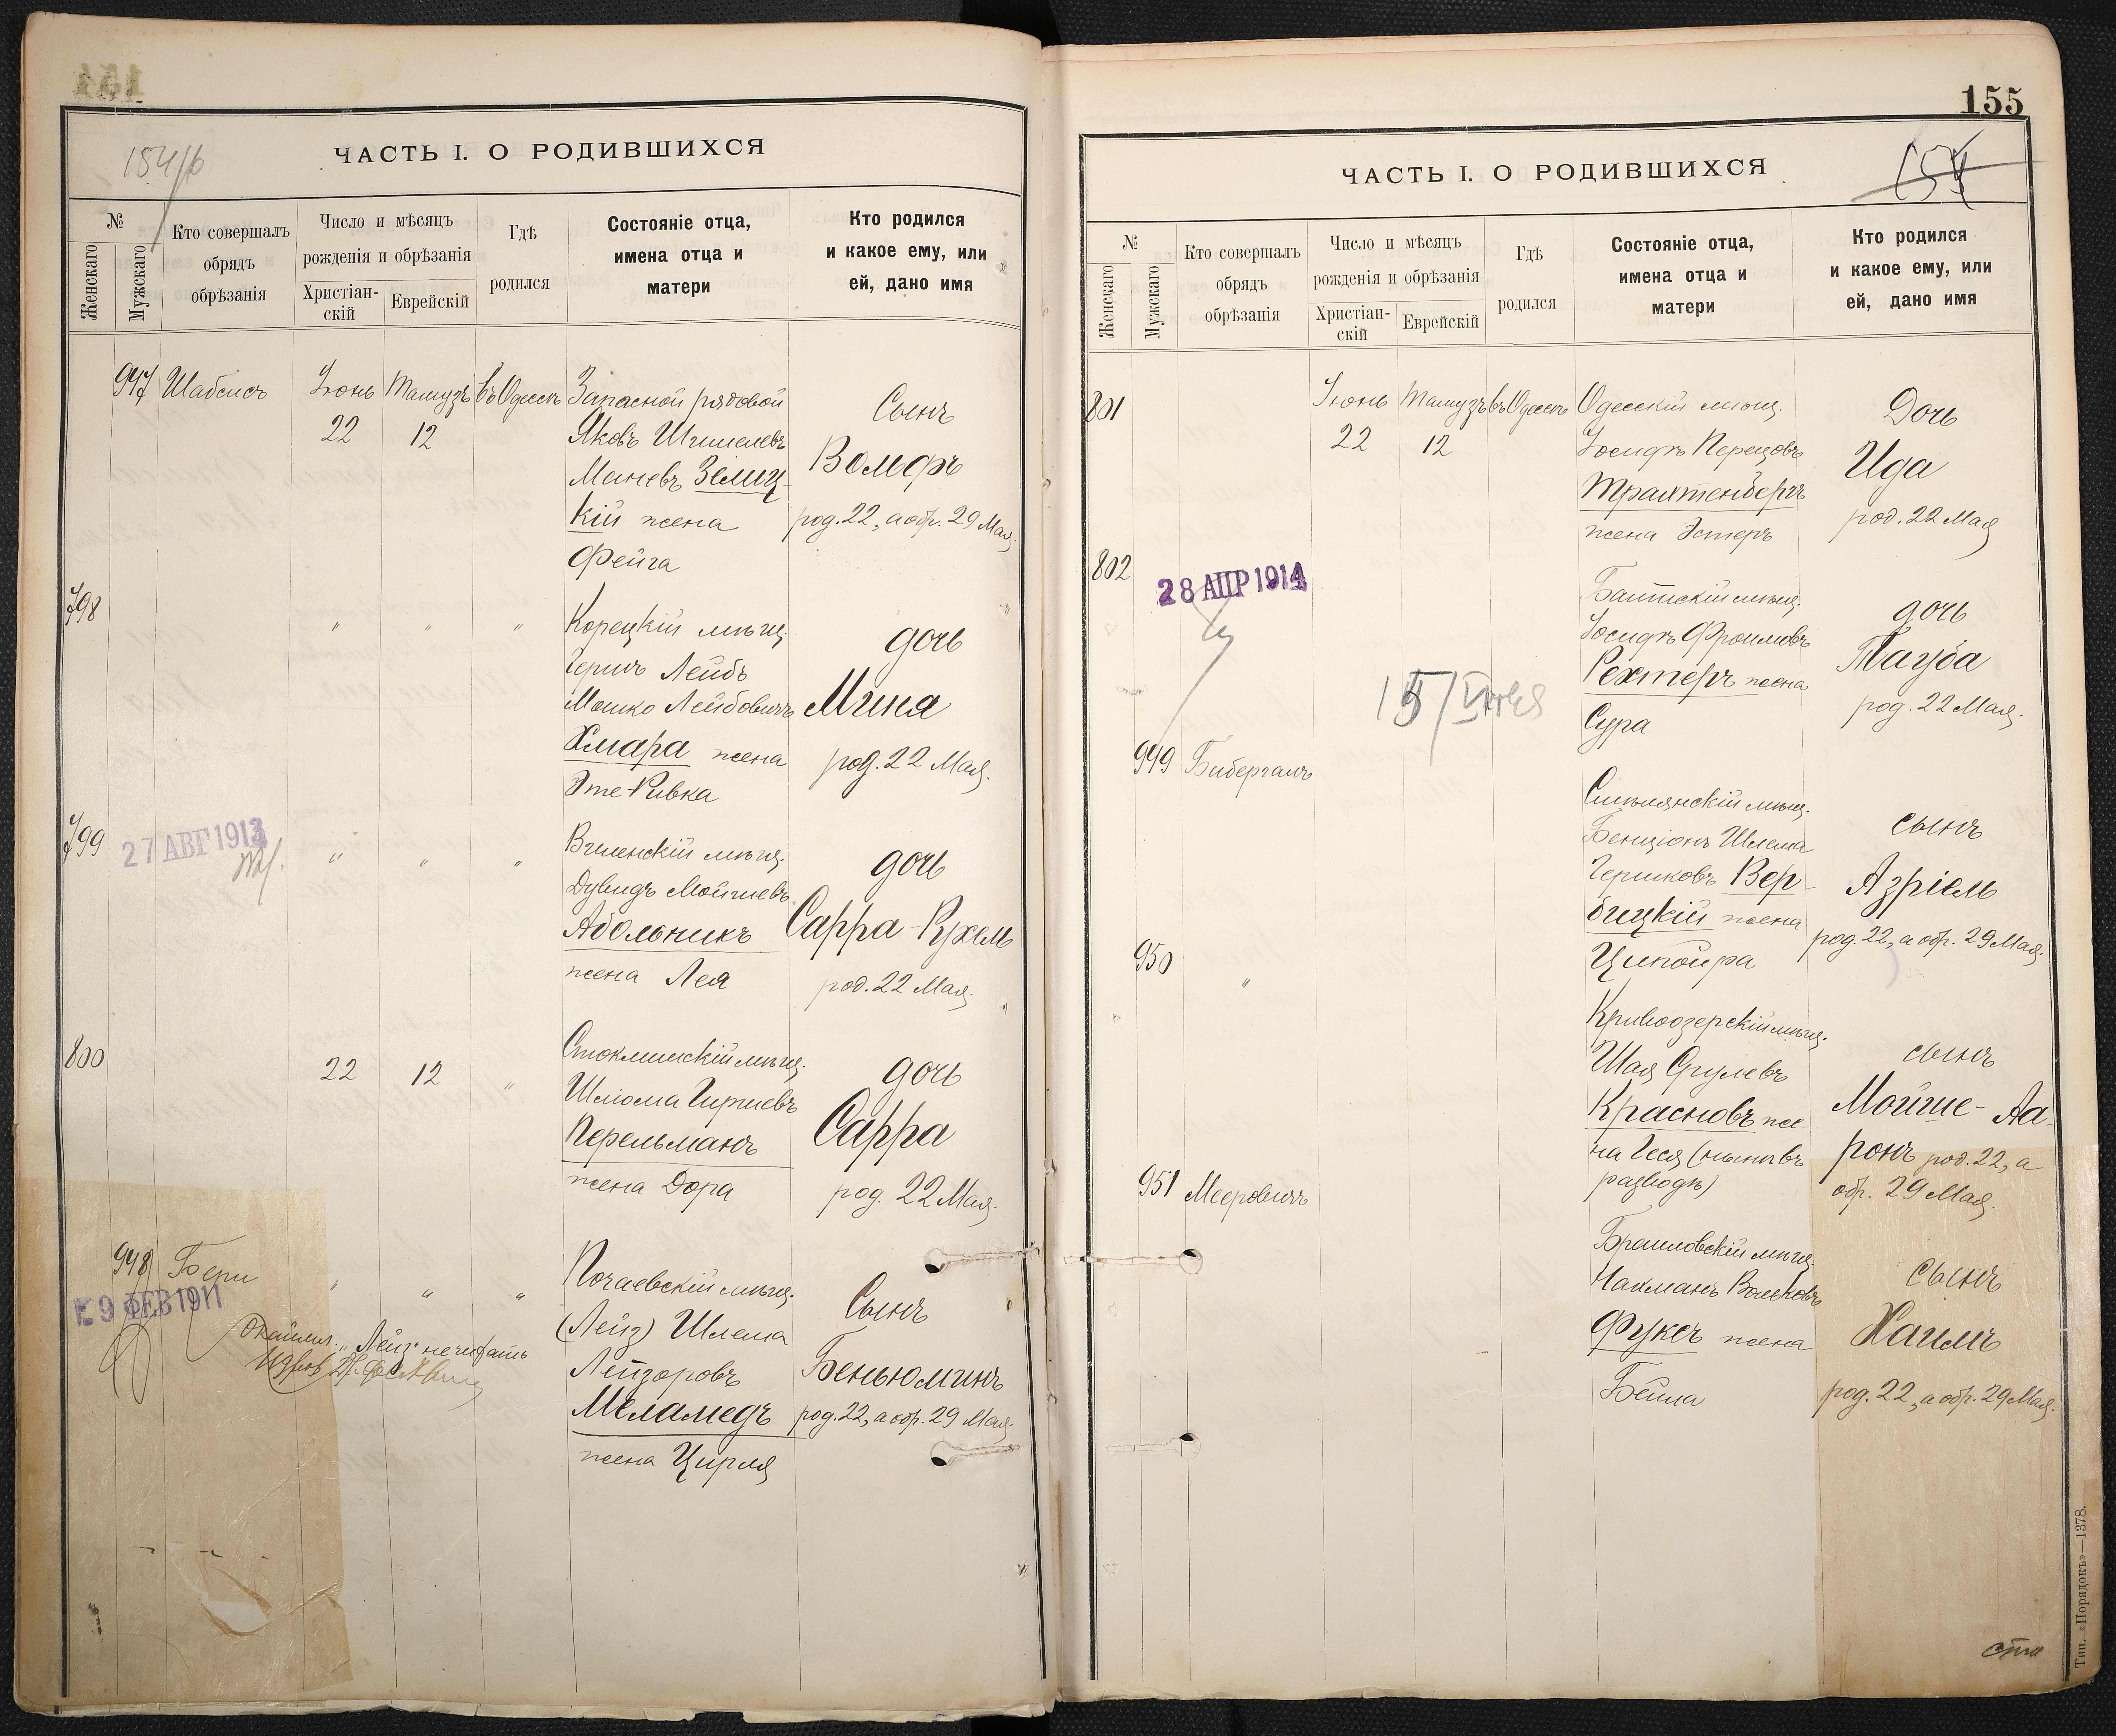 154/б
ЧАСТЬ I. О РОДИВШИХСЯ
№
Женскаго
Мужскаго
Кто совершалъ
обрядъ
обрѣзанія
Число и мѣсяцъ
рожденія и обрѣзанія
Христіан-
скій
Еврейскій
Гдѣ
родился
Состояніе отца,
имена отца и
матери
Кто родился
и какое ему, или
ей, дано имя
947 Шабсисъ Іюнь Тамузъ въ Одессѣ
22 12
Запасной рядовой
Яковъ
Зелиц-
кій жена
Фейга
Сынъ
Вольфъ
род. 22, а обр. 29 Мая.
798 " " "
Корецкій мѣщ.
Гершъ Лейбъ
Мошко Лейбовичъ
Хмара жена
Эте-Ривка
дочь
Миня
род. 22 Мая.
799
27 АВГ 1913
" " "
Виленскій мѣщ.
Дувидъ Мойшевъ
Абольникъ
жена Лея
дочь
Сарра-Рухель
род. 22 Мая.
800 22 12 "
мѣщ.
Шлема
Перельманъ
жена Дора
дочь
Сарра
род. 22 Мая.
948 Бери " " "
9 ФЕВ 1911
"Лейз" не читать
Почаевскій мѣщ.
(Лейз) Шлема
Лейзоровъ
Меламедъ
жена Цирля
Сынъ
Беньюминъ
род. 22, а обр. 29 Мая.
155
ЧАСТЬ I. О РОДИВШИХСЯ
154
№
Женскаго
Мужскаго
Кто совершалъ
обрядъ
обрѣзанія
Число и мѣсяцъ
рожденія и обрѣзанія
Христіан-
скій
Еврейскій
Гдѣ
родился
Состояніе отца,
имена отца и
матери
Кто родился
и какое ему, или
ей, дано имя
801 Іюнь Тамузъ въ Одессѣ
22 12
Одесскій мѣщ.
Іосифъ Перецовъ
Трахтенбергъ
жена Эстеръ
Дочь
Ида
род. 22 Мая
802
28 АПР 1914
Балтскій мѣщ.
Іосифъ Фроимовъ
Рехтеръ жена
Сура
дочь
Тауба
род. 22 Мая.
949 Бибергалъ
мѣщ.
Бенціонъ Шлема
Гершковъ Вер-
бицкій жена
Ципойра
сынъ
Азріель
род. 22, а обр. 29 Мая.
950 "
Кривоозерскій мѣщ.
Шая Срулевъ
Красновъ же-
на Геся (нынѣ въ
разводѣ)
сынъ
Мойше-Аа-
ронъ род. 22, а
обр. 29 Мая.
951 Мееровичъ
Браиловскій мѣщ.
Нахманъ Вольковъ
Фуксъ жена
Бейла
сынъ
Хаимъ
род. 22, а обр. 29 Мая.
сто
Тип. «Порядокъ»—1378.